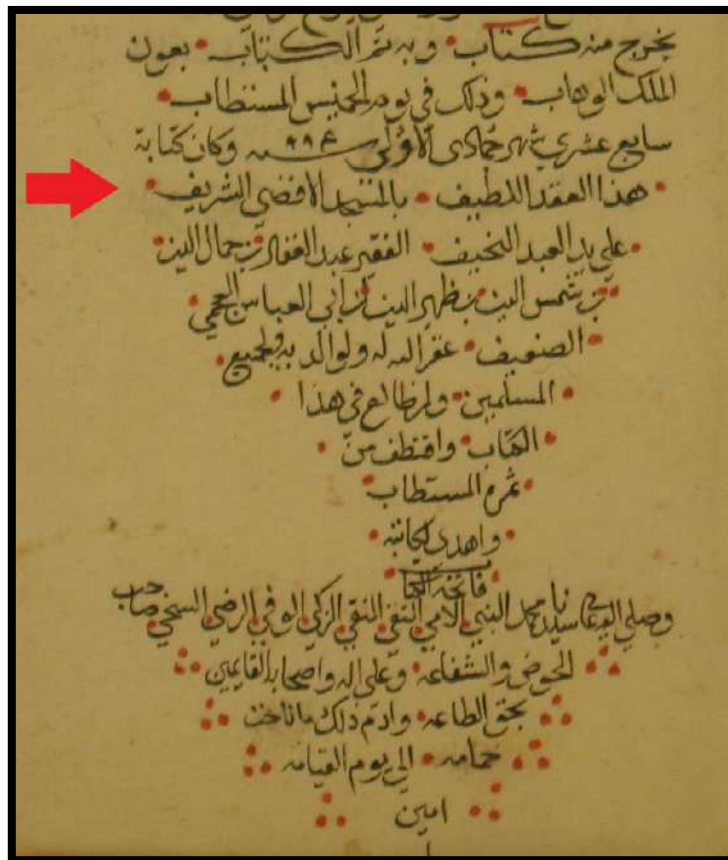 يخرج منه كتاب وبه تم الكتاب بعون
الملك الوهاب وذلك في يوم الخميس المستطاب
سابع عشري شهر جمادى الأولى سنه ٩٩٤ وكان كتابة
هذا العقد اللطيف بالمسجد الاقصى الشريف
على يد العبد النحيف الفقير عبد الغفار بن جمال الدين
بن شمس الدين بن ظهير الدين بن ابي العباس العجمي
الضعيف غفر الله له ولوالديه ولجميع
المسلمين ولمن طالع في هذا
الكتاب واقتطف من
ثمره المستطاب
واهدى لكاتبه
فاتحة الكتاب
وصلى الله على سيدنا محمد النبي الامي التقي النقي الزكي الوفي الرضي السخي صاحب
الحوض والشفاعه وعلى اله واصحابه القايمين
بحق الطاعه وادم ذلك ما ناحت
حمامه الى يوم القيامه
امين